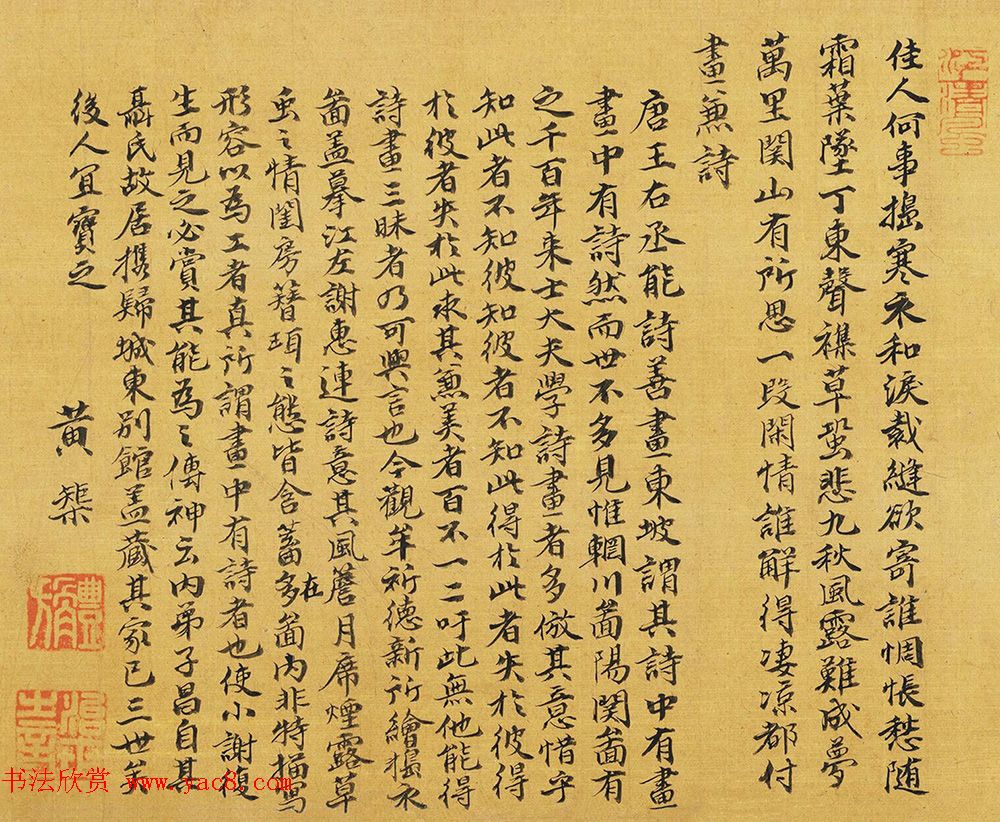 佳人何事搗寒衣和淚裁縫欲寄誰惆悵愁随
霜葉墜丁東聲襍草蛩悲九秋風露難成夢
萬里関山有所思一段閑情誰解得凄涼都付
畫兼詩
唐王右丞能詩善畫東坡謂其詩中有畫
畫中有詩然而世不多見惟輞川啚陽関啚有
之千百年来士大夫學詩畫者多倣其意惜乎
知此者不知彼知彼者不知此得扵此者失扵彼得
扵彼者失扵此求其兼美者百不一二吁此無他能得
詩畫三昧者乃可與言也今觀牟祈德新所繪搗衣
啚盖摹江左謝惠連詩意其風簷月席煙露草
虫之情閨房簪珥之態皆含蓄多在啚内非特描寫
形容以為工者真所謂畫中有詩者也使小謝復
生而見之必賞其能為之傳神云内弟子昌自其
聶氏故居携歸城東别館盖藏其家已三世矣
後人宜寳之
黄榘
书法欣赏 www.yac8.com